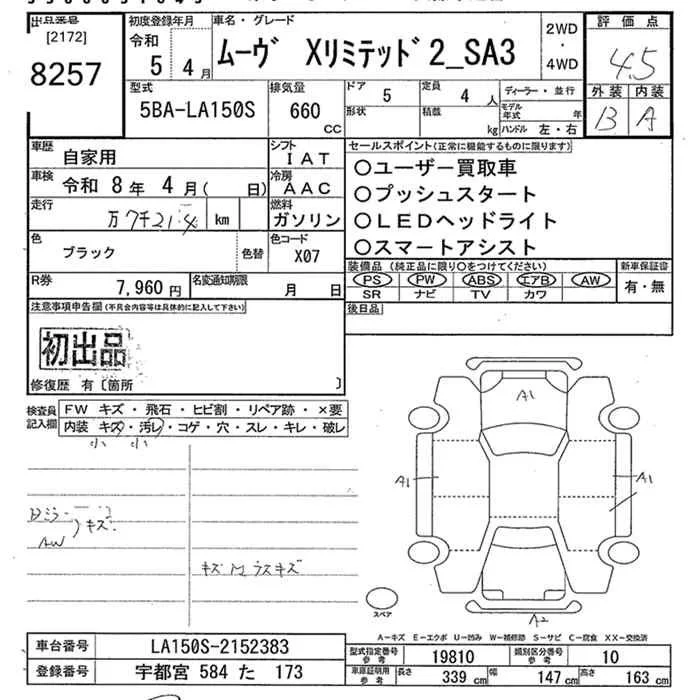 出品番号 初度登録年月 車名・グレード 2WD ・ 4WD 評価点
[2172] 令和 ムーヴ Xリミテッド2_SA3 4.5
8257 5年 4月 外装 内装
型式 排気量 ドア 5 定員 4人 ディーラー・並行 B A
5BA-LA150S 660 CC 形状 積載 kg モデル年式 年
ハンドル 左・右
車歴 自家用 シフト IAT セールスポイント(正常に機能するものに限ります)
車検 令和 8年 4月( 日) 冷房 AAC ○ユーザー買取車
走行 万7千214 km 燃料 ガソリン ○プッシュスタート
色 ブラック 色替 色コード X07 ○LEDヘッドライト
○スマートアシスト
R券 7,960円 名変通知期限 月 日 装備品(純正品に限り○をつけてください) 新車保証書
PS PW ABS エアB AW 有・無
SR ナビ TV カワ
注意事項申告欄(不具合内容等は具体的に記入して下さい) 後日品
初出品
修復歴 有〔箇所 〕
検査員記入欄 FW キズ・飛石・ヒビ割・リペア跡・×要
内装 キズ・汚レ・コゲ・穴・スレ・キレ・破レ
小 小
A1
A1 A1
キズ
AW
キズ M ラスキズ
スペア
A2
A-キズ E-エクボ U-凹み W-補修跡 S-サビ C-腐食 XX-交換済
車台番号 LA150S-2152383 型式指定番号 参考 19810 類別区分番号 参考 10
登録番号 宇都宮 584 た 173 車庫証明用 参考 長さ 339 cm 幅 147 cm 高さ 163 cm